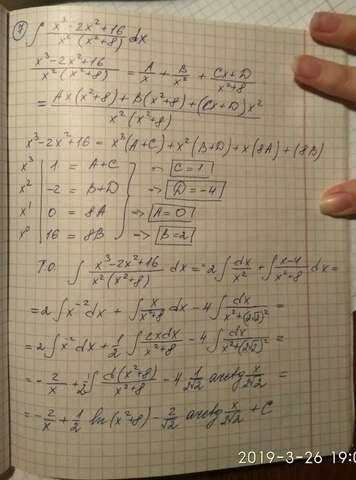 7) ∫ x³-2x²+16 / x²(x²+8) dx
x³-2x²+16 / x²(x²+8) = A/x + B/x² + Cx+D / x²+8 =
= Ax(x²+8)+B(x²+8)+(Cx+D)x² / x²(x²+8)
x³-2x²+16 = x³(A+C)+x²(B+D)+x(8A)+(8B)
x³ | 1 = A+C => C=1
x² | -2 = B+D => D=-4
x¹ | 0 = 8A => A=0
x⁰ | 16 = 8B => B=2
Т.О. ∫ x³-2x²+16 / x²(x²+8) dx = 2∫ dx/x² + ∫ x-4 / x²+8 dx =
= 2∫x⁻²dx + ∫ x / x²+8 dx - 4∫ dx / x²+(2√2)² =
= 2∫x⁻²dx + 1/2 ∫ 2xdx / x²+8 - 4∫ dx / x²+(2√2)² =
= -2/x + 1/2 ∫ d(x²+8) / x²+8 - 4 · 1/2√2 arctg x/2√2 =
= -2/x + 1/2 ln(x²+8) - 2/√2 arctg x/2√2 + C
2019-3-26 19:0